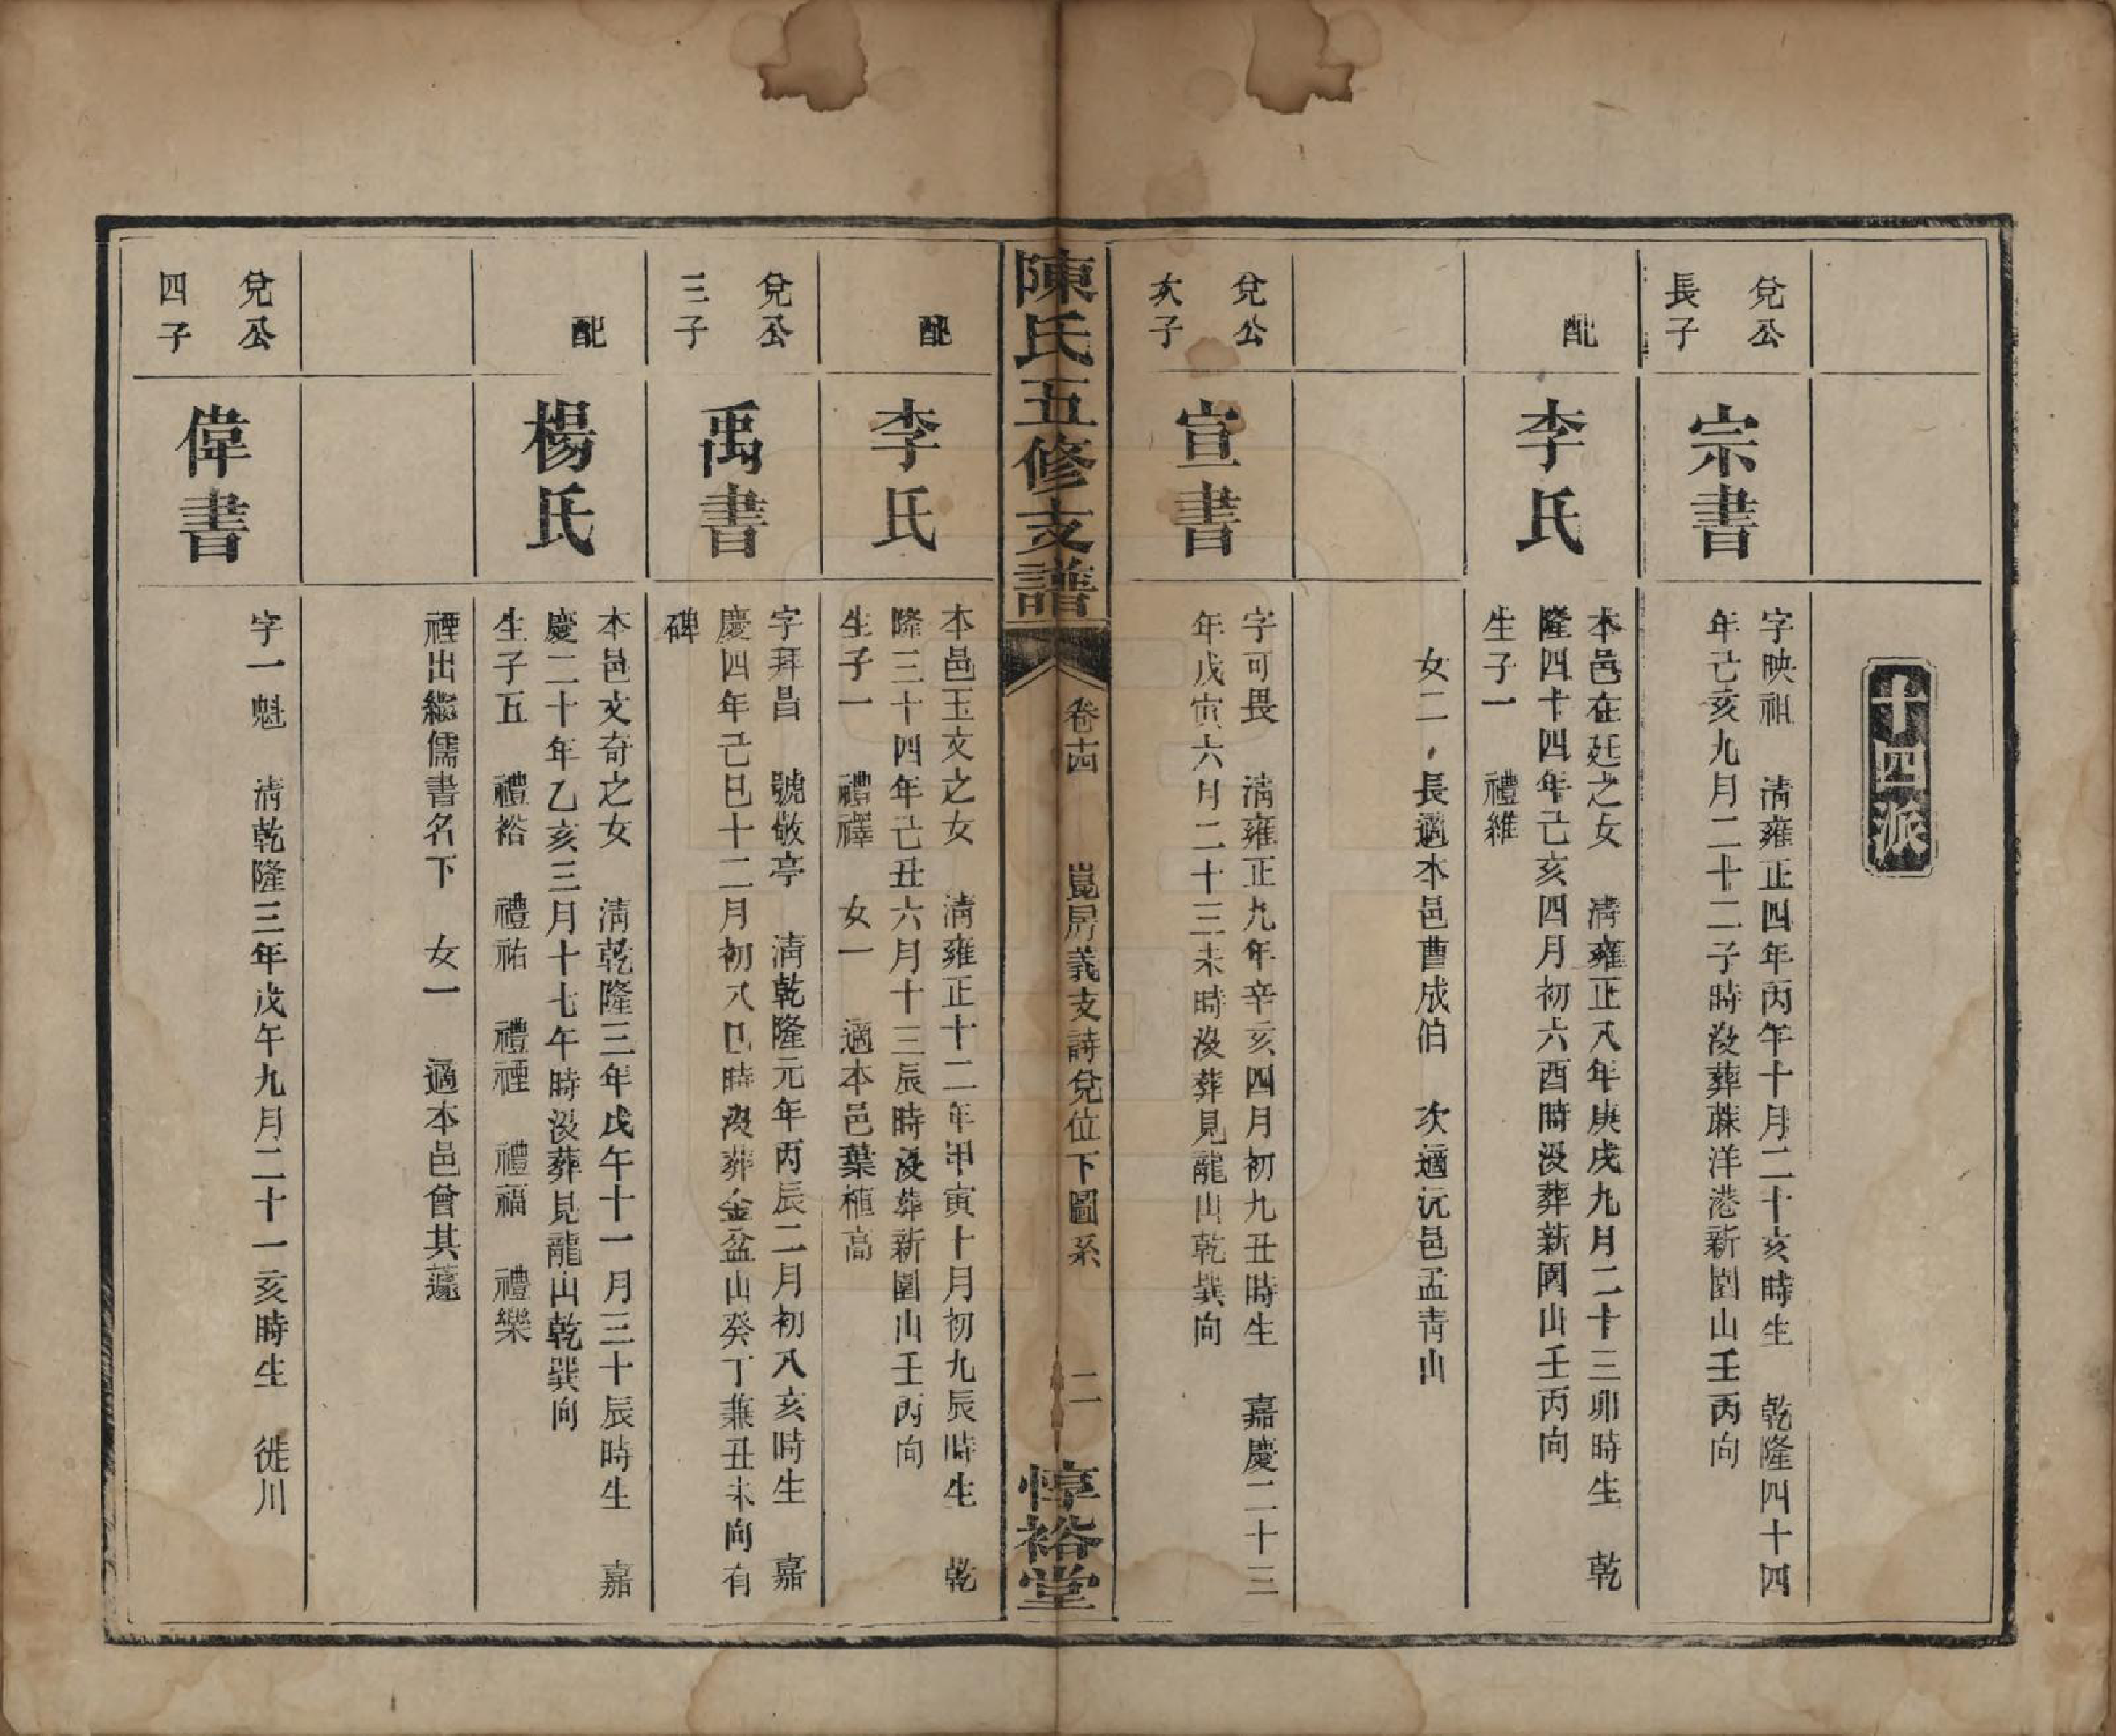 十四派
兌公
長子
宗書
字映祖　清雍正四年丙午十月二十亥時生　乾隆四十四
年己亥九月二十二子時沒葬蔴洋港新園山壬丙向
配
李氏
本邑在廷之女　清雍正八年庚戌九月二十三卯時生　乾
隆四十四年己亥四月初六酉時沒葬新園山壬丙向
生子一　禮維
女二　長適本邑曹成伯　次適沅邑孟靑山
兌公
次子
宣書
字可畏　清雍正九年辛亥四月初九丑時生　嘉慶二十三
年戊寅六月二十三未時沒葬見龍山乾巽向
陳氏五修支譜
卷十四　崑房義支詩兌位下圖系　二
惇裕堂
配
李氏
本邑玉文之女　清雍正十二年甲寅十月初九辰時生　乾
隆三十四年己丑六月十三辰時沒葬新園山壬丙向
生子一　禮禪　女一　適本邑葉植高
兌公
三子
禹書
字拜昌　號敬亭　清乾隆元年丙辰二月初八亥時生　嘉
慶四年己巳十二月初八巳時沒葬金盆山癸丁兼丑未向有
碑
配
楊氏
本邑文奇之女　清乾隆三年戊午十一月三十辰時生　嘉
慶二十年乙亥三月十七午時沒葬見龍山乾巽向
生子五　禮裕　禮祐　禮禋　禮福　禮樂
禋出繼儒書名下　女一　適本邑曾其蘧
兌公
四子
偉書
字一魁　清乾隆三年戊午九月二十一亥時生　徙川